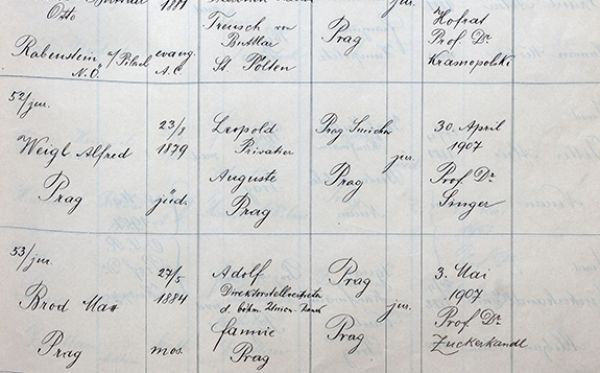 Otto
1881
jur.
Hofrat
Treusch von
Buttlar
Prag
Prof. Dr.
Rabenstein, b/Pilsel
N.Ö.
evang.
A.C.
St. Pölten
Krasnopolski
52/jur.
Weigl Alfred
Prag
23/1
1879
jüd.
Leopold
Privatier
Auguste
Prag
Prag Smichov
jur.
Prag
30. April
1907
Prof. Dr.
Singer
53/jur.
Brod Max
Prag
27/5
1884
mos.
Adolf
Direktorstellvertreter
d. böhm. Union-Bank
Fannie
Prag
Prag
jur.
Prag
3. Mai
1907
Prof. Dr.
Zuckerkandl